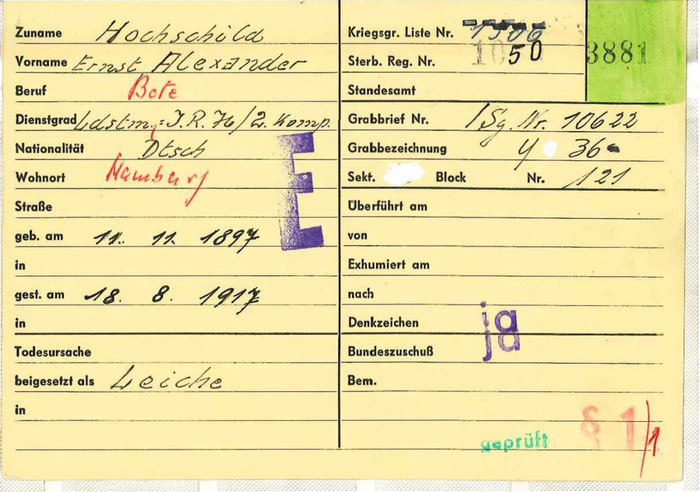 Zuname Hochschild
Vorname Ernst Alexander
Beruf Bote
Dienstgrad Ldstm. J.R. 76/2. Komp.
Nationalität Dtsch
Wohnort Hamburg
Straße
geb. am 11. 11. 1897
in
gest. am 18. 8. 1917
in
Todesursache
beigesetzt als Leiche
in
E
Kriegsgr. Liste Nr. 1506
Sterb. Reg. Nr. 1050
3881
Standesamt
Grabbrief Nr. / Sg. Nr. 10622
Grabbezeichnung Y 36
Sekt. Block Nr. 121
Überführt am
von
Exhumiert am
nach
Denkzeichen ja
Bundeszuschuß ja
Bem.
geprüft § 1/1